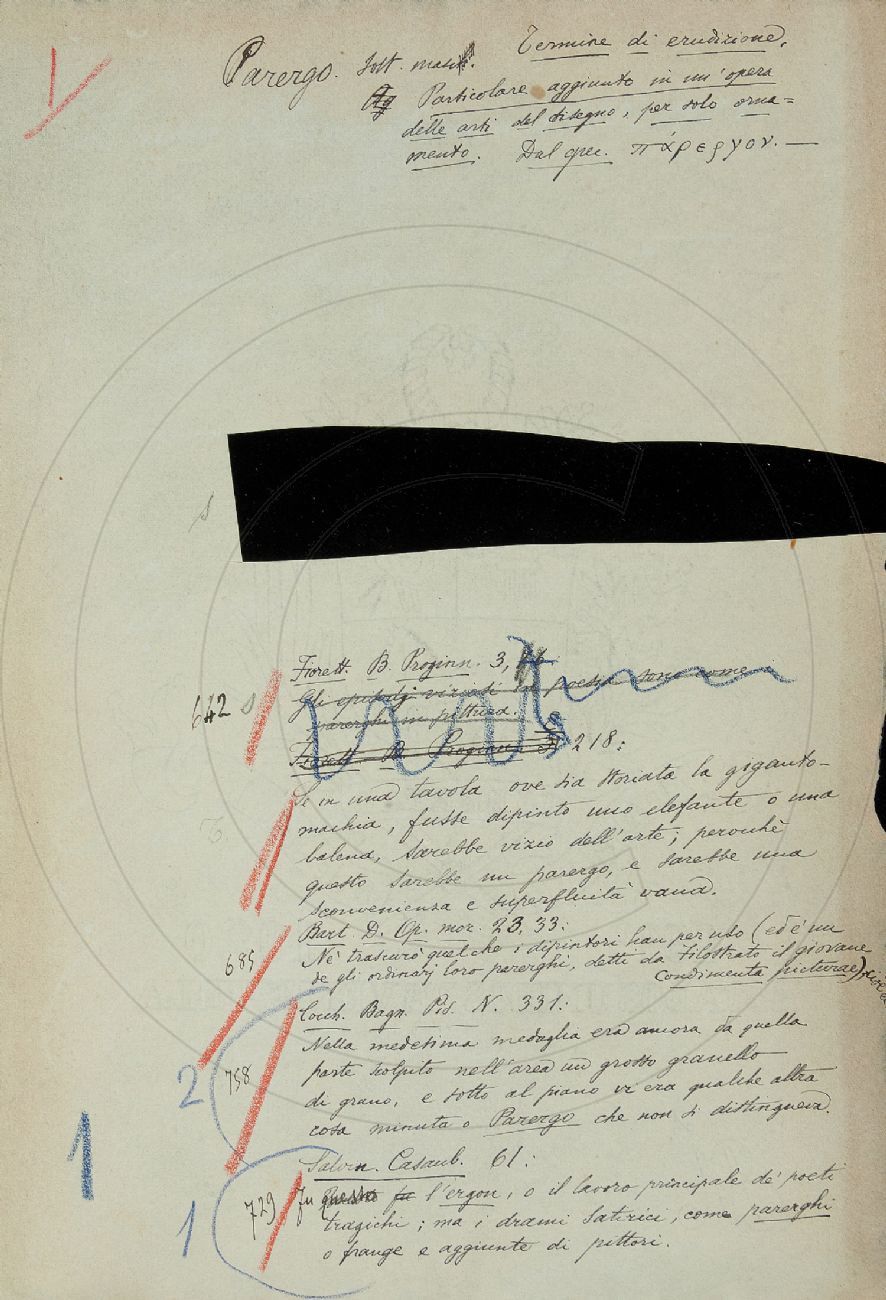 Parergo. Sost. masc. Termine di erudizione.
Particolare aggiunto in un' opera
delle arti del disegno, per solo orna=
mento. Dal grec. πάρεργον. —
s
Fiorett. B. Proginn. 3,
642 s
Gli episodj viziosi in poesia sono come i
parerghi in pittura.
Fiorett. B. Proginn. 218:
Se in una tavola ove sia storiata la giganto-
machia, fusse dipinto uno elefante o una
balena, sarebbe vizio dell'arte; perocchè
questo sarebbe un parergo, e sarebbe una
sconvenienza e superfluità vana.
Bart. D. Op. mor. 23, 33:
685
Nè trascurò quel che i dipintori han per uso (ed è un
de gli ordinarj loro parerghi, detti da Filostrato il giovane
condimenta picturae)
Cocch. Bagn. Pis. N. 331:
Nella medesima medaglia era ancora da quella
2 758
parte scolpito nell'area un grosso granello
di grano, e sotto al piano vi era qualche altra
cosa minuta o Parergo che non si distingueva.
1
Salvin. Casaub. 61:
729
Fu questo l'ergon, o il lavoro principale de' poeti
1
tragichi; ma i drami Satirici, come parerghi
o frange e aggiunte di pittori.